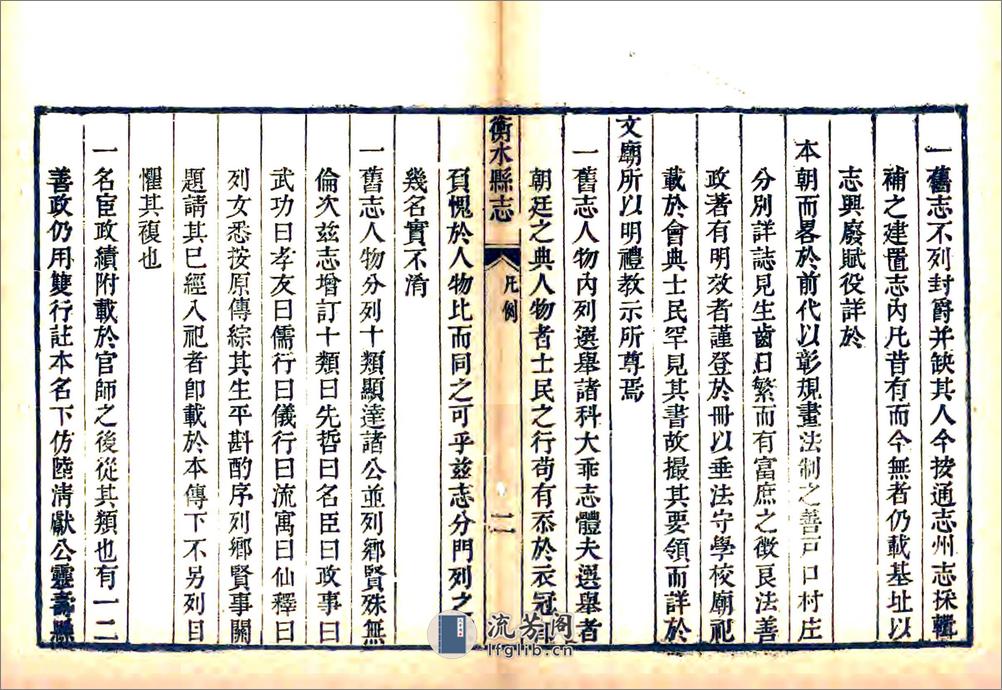 一舊志不列封爵并缺其人今按通志州志採輯
補之建置志內凡昔有而今無者仍載基址以
志興廢賦役詳於
本朝而畧於前代以彰規畫法制之善戸口村庄
分別詳誌見生齒日繁而有富庶之徵良法善
政著有明效者謹登於冊以垂法守學校廟祀
載於會典士民罕見其書故撮其要領而詳於
文廟所以明禮教示所尊焉
一舊志人物內列選舉諸科大乖志體夫選舉者
朝廷之典人物者士民之行苟有忝於衣冠
衡水縣志
凡例
二
頁愧於人物比而同之可乎茲志分門列之
幾名實不淆
一舊志人物分列十類顯達諸公並列鄉賢殊無
倫次茲志增訂十類曰先哲曰名臣曰政事曰
武功曰孝友曰儒行曰儀行曰流寓曰仙釋曰
列女悉按原傳綜其生平斟酌序列鄉賢事關
題請其已經入祀者卽載於本傳下不另列目
懼其複也
一名臣政績附載於官師之後從其類也有一二
善政仍用雙行註本名下仿陸清獻公靈壽縣
流芳阁
lfglib.cn